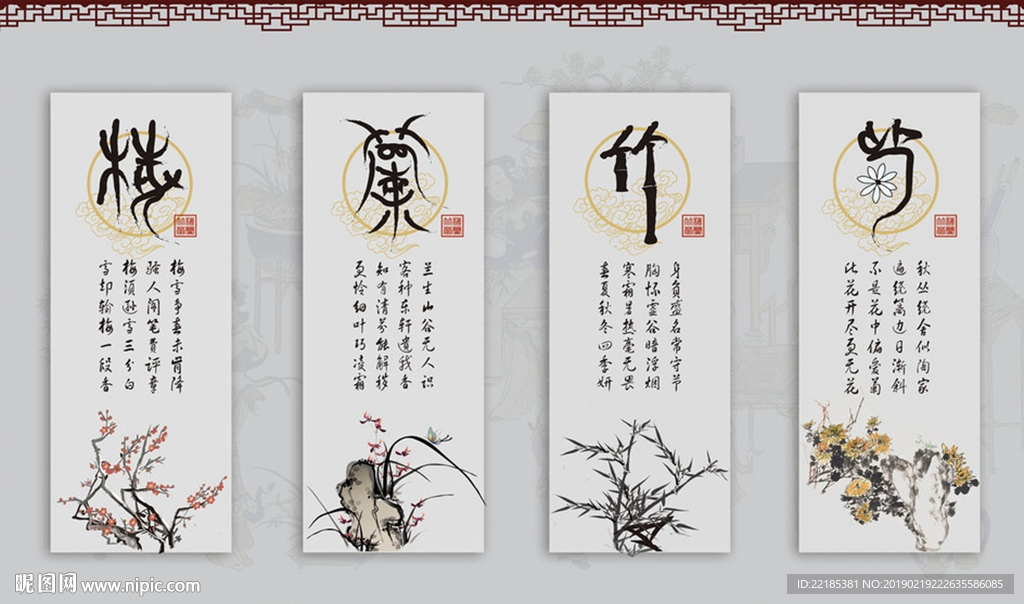 梅
梅雪争春未肯降
骚人阁笔费评章
梅须逊雪三分白
雪却输梅一段香
蘭
兰生山谷无人识
客种东轩遗我香
知有清芬能解秽
更怜细叶巧凌霜
竹
身负盛名常守节
胸怀虚谷暗浮烟
寒霜暑热毫无畏
春夏秋冬四季妍
菊
秋丛绕舍似陶家
遍绕篱边日渐斜
不是花中偏爱菊
此花开尽更无花
昵图网 www.nipic.com
ID:22185381 NO:20190219222635586085